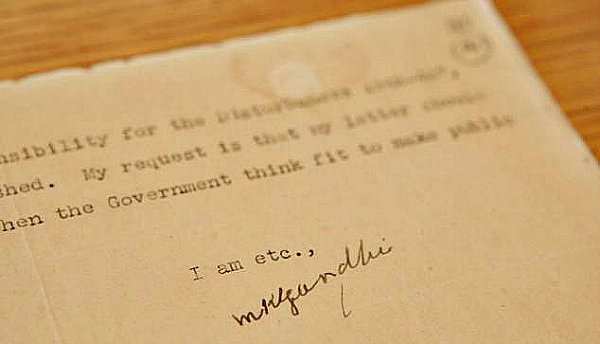 nsibility for the Disturbances
shed. My request is that my letter
hen the Government think fit to make public
I am etc.,
mKgandhi